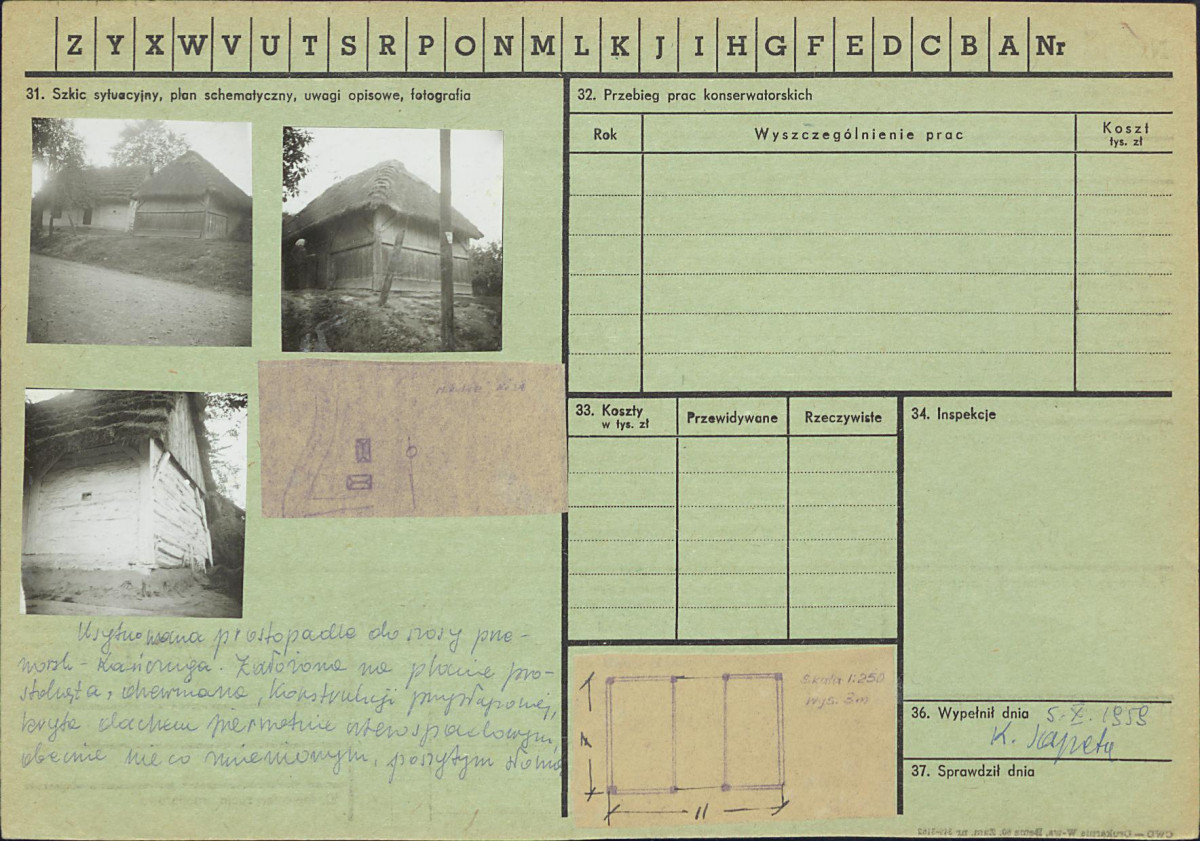 Z Y X W V U T S R P O N M L K J I H G F E D C B A Nr
31. Szkic sytuacyjny, plan schematyczny, uwagi opisowe, fotografia
Usytuowana prostopadle do szosy prze-
worsk - Kańczuga. Założona na planie pro-
stokąta, drewniana, konstrukcji przysłupowej,
kryta dachem pierwotnie czterospadowym,
obecnie nieco zmienionym, poszytym słomą
32. Przebieg prac konserwatorskich
Rok
Wyszczególnienie prac
Koszt
tys. zł
33. Koszty
w tys. zł
Przewidywane
Rzeczywiste
34. Inspekcje
Skala 1:250
wys. 3m
7
11
36. Wypełnił dnia 5.X.1959
K. Sapeta
37. Sprawdził dnia